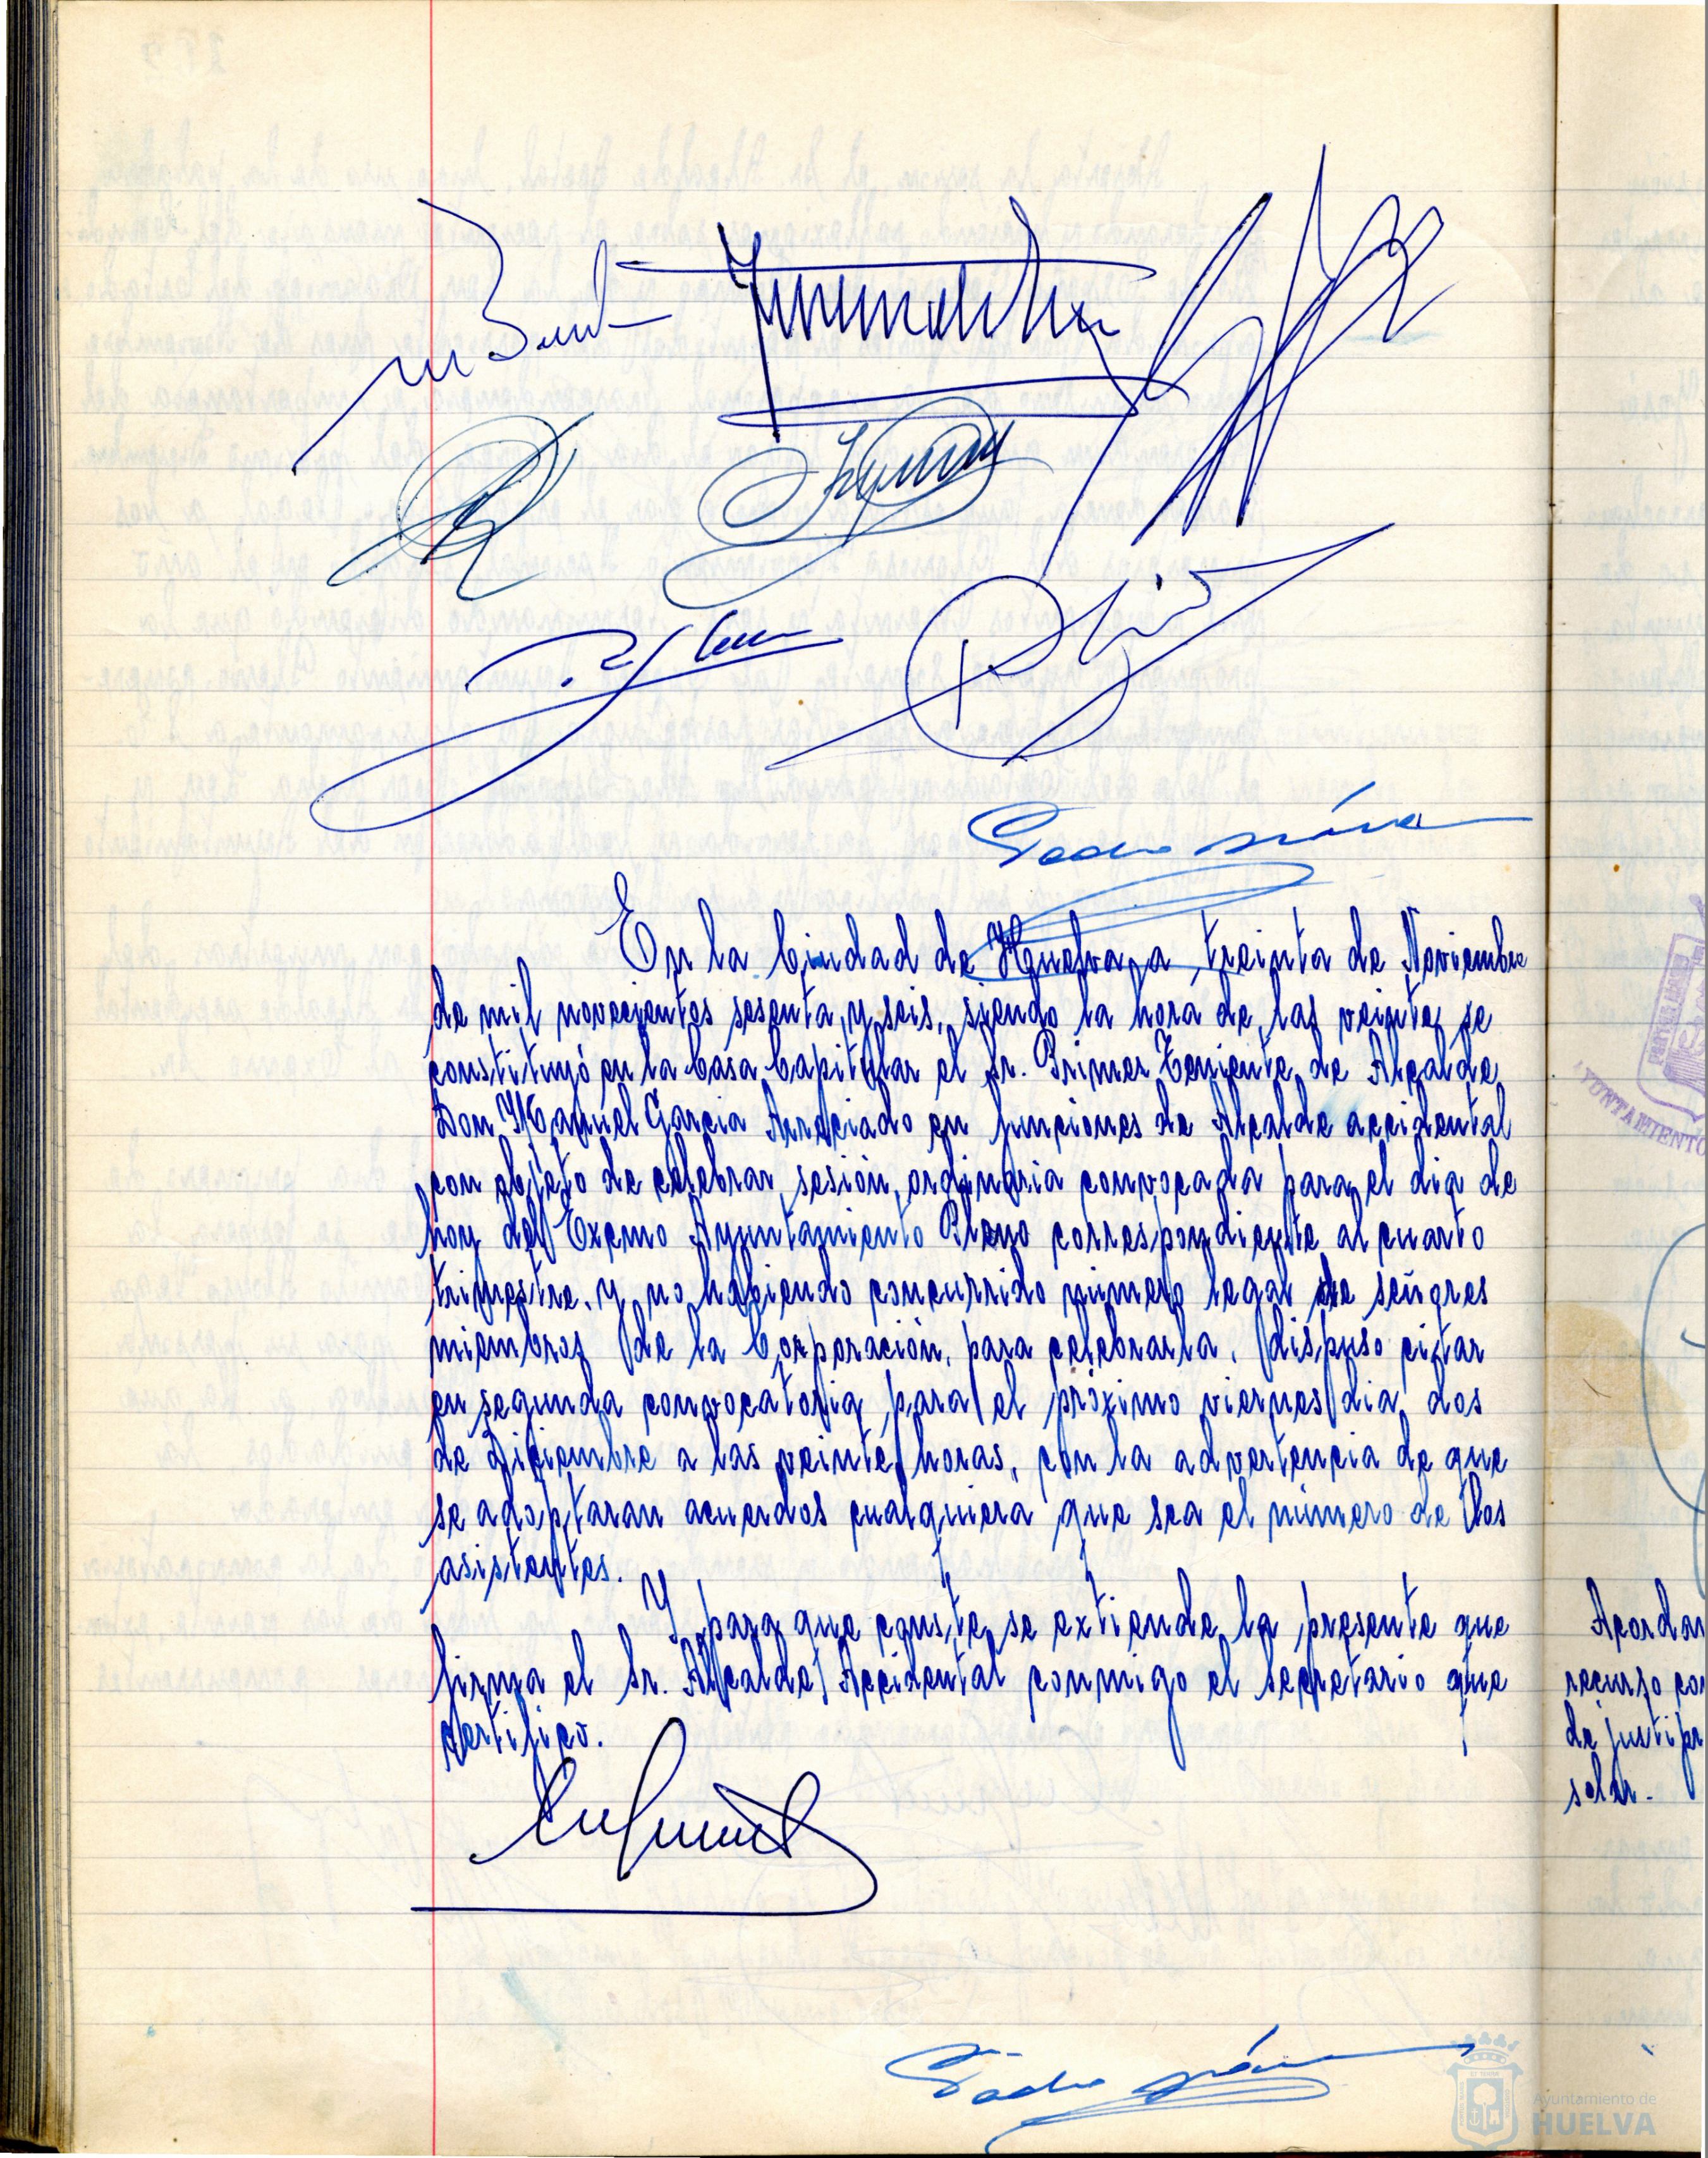 En la Ciudad de Huelva, a treinta de Noviembre
de mil novecientos sesenta y seis, siendo la hora de las veinte, se
constituyó en la Casa Capitular el Sr. Primer Teniente de Alcalde
Don Manuel Garcia en funciones de Alcalde accidental
con objeto de celebrar sesión ordinaria convocada para el dia de
hoy del Excmo Ayuntamiento Pleno correspondiente al cuarto
trimestre, y no habiendo concurrido número legal de señores
miembros de la Corporación, para celebrarla, dispuso citar
en segunda convocatoria para el próximo viernes dia dos
de Diciembre a las veinte horas, con la advertencia de que
se adoptaran acuerdos cualquiera que sea el número de los
asistentes.
Y para que conste, se extiende la presente que
firma el Sr. Alcalde Accidental conmigo el Secretario que
certifico.
Acordar
recurso con
de justipr
solar.
AYUNTAMIENTO
Ayuntamiento de
HUELVA